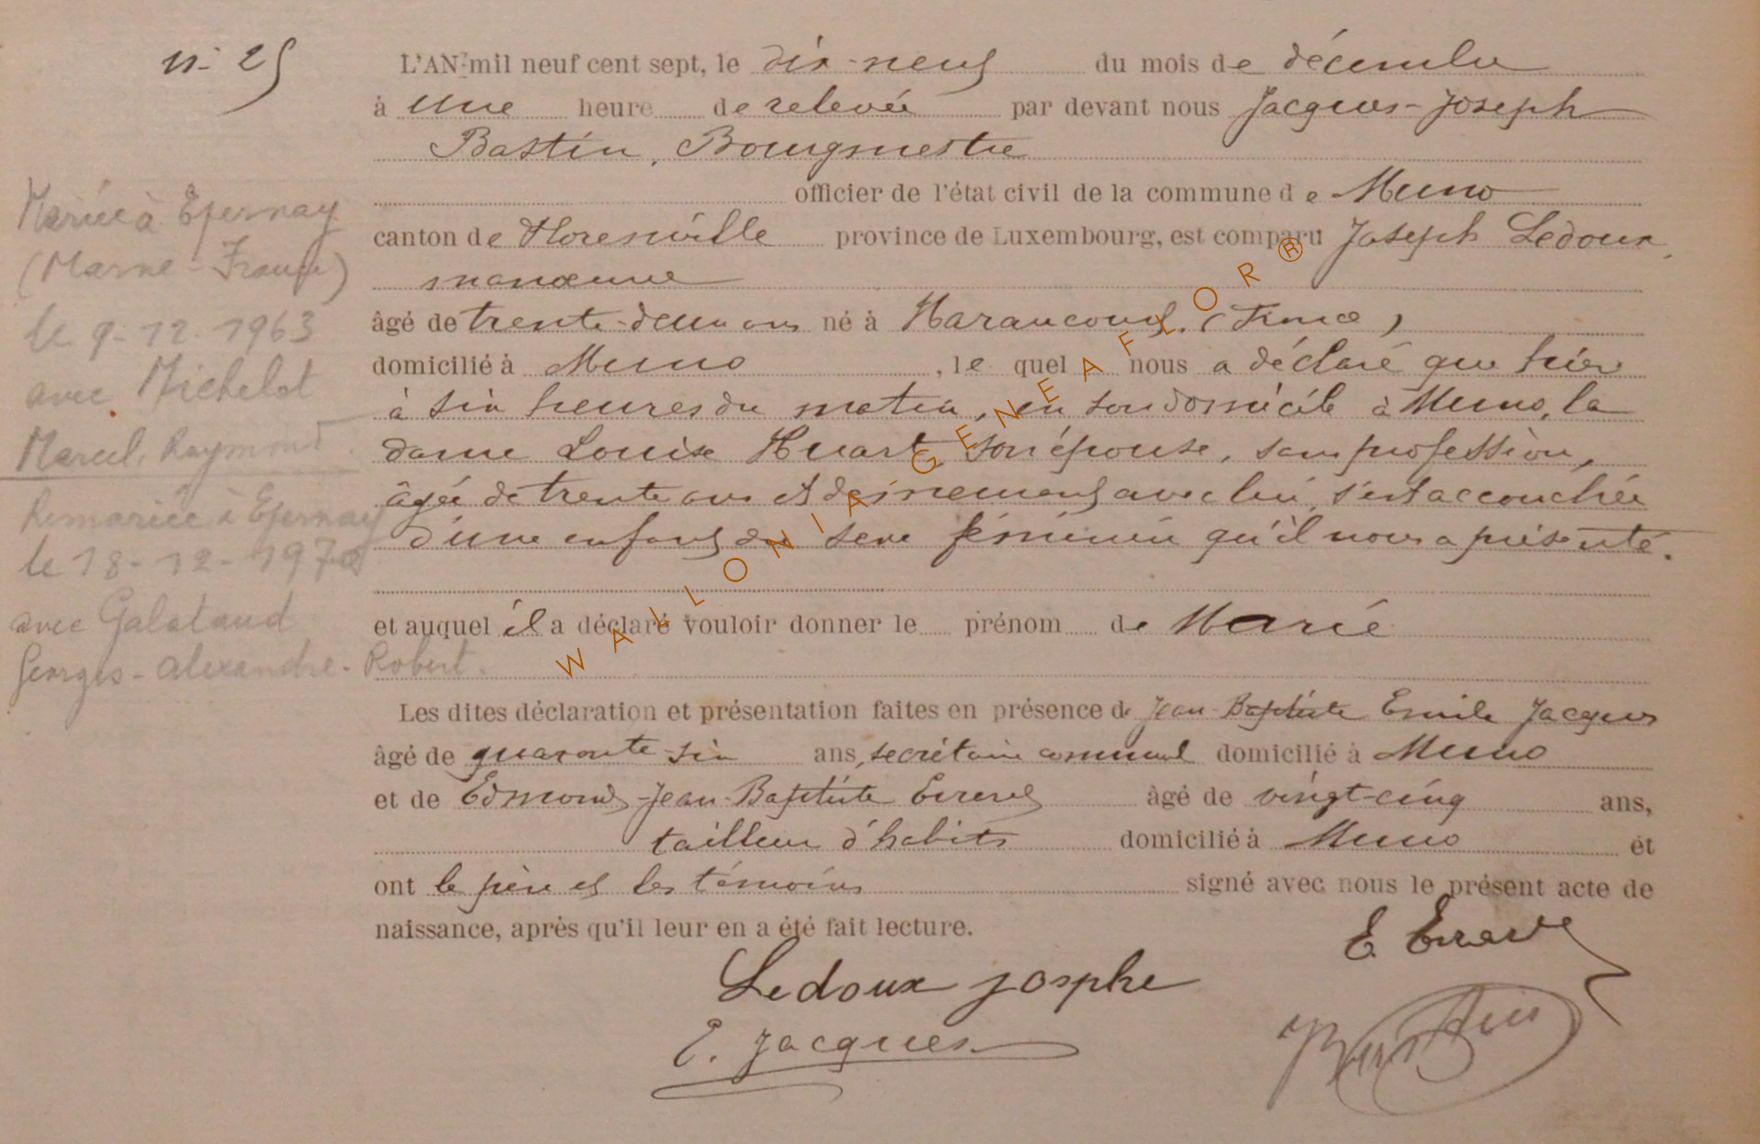 n° 25
L'AN mil neuf cent sept, le dix-neuf du mois de décembre
à une heure de relevée par devant nous Jacques-Joseph
Bastin, Bourgmestre
officier de l'état civil de la commune de Muno
canton de Florenville province de Luxembourg, est comparu Joseph Ledoux,
manœuvre
âgé de trente-deux ans né à Haraucourt (France)
domicilié à Muno, le quel nous a déclaré que hier
à six heures du matin, en son domicile à Muno, la
dame Louise Huart, son épouse, sans profession,
âgée de trente ans et demeurant avec lui, s'est accouchée
d'une enfant du sexe féminin qu'il nous a présenté.
et auquel il a déclaré vouloir donner le prénom de Marie
Les dites déclaration et présentation faites en présence de Jean-Baptiste Emile Jacques
âgé de quarante-six ans, secrétaire communal domicilié à Muno
et de Edmond-Jean-Baptiste âgé de vingt-cinq ans,
tailleur d'habits domicilié à Muno et
ont le père et les témoins signé avec nous le présent acte de
naissance, après qu'il leur en a été fait lecture.
Ledoux Josphe
E. Jacques
E
JBastin
Mariée à Epernay
(Marne-France)
le 9-12-1963
avec Michelot
Marcel, Raymond.
Remariée à Epernay
le 18-12-1970
avec Galataud
Georges-Alexandre-Robert.
WALLONIA GENEAFLOR®